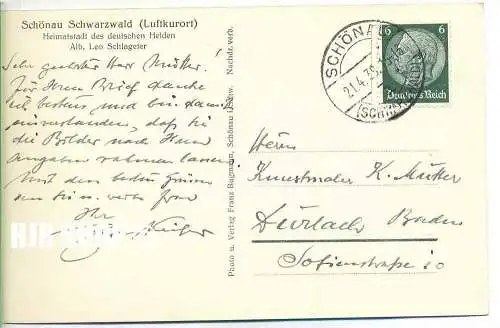 Schönau Schwarzwald (Luftkurort)
Heimatstadt des deutschen Helden
Alb. Leo Schlageter
Sehr geehrter Herr Mütker!
Für Ihren Brief danke
ich bestens und bin damit
einverstanden, daß sie
die Bilder nach Ihren
Angaben rahmen lassen.
Mit den besten Grüssen
an Sie u. werte Frau
Ihr
Photo u. Verlag Franz Bugmann, Schönau i. Schw. Nachdr. verb.
SCHÖNAU
21.4.39
(SCHW
6 6
Deutsches Reich
Herrn
Kunstmaler K. Mütker
Durlach Baden
Sofienstraße 20